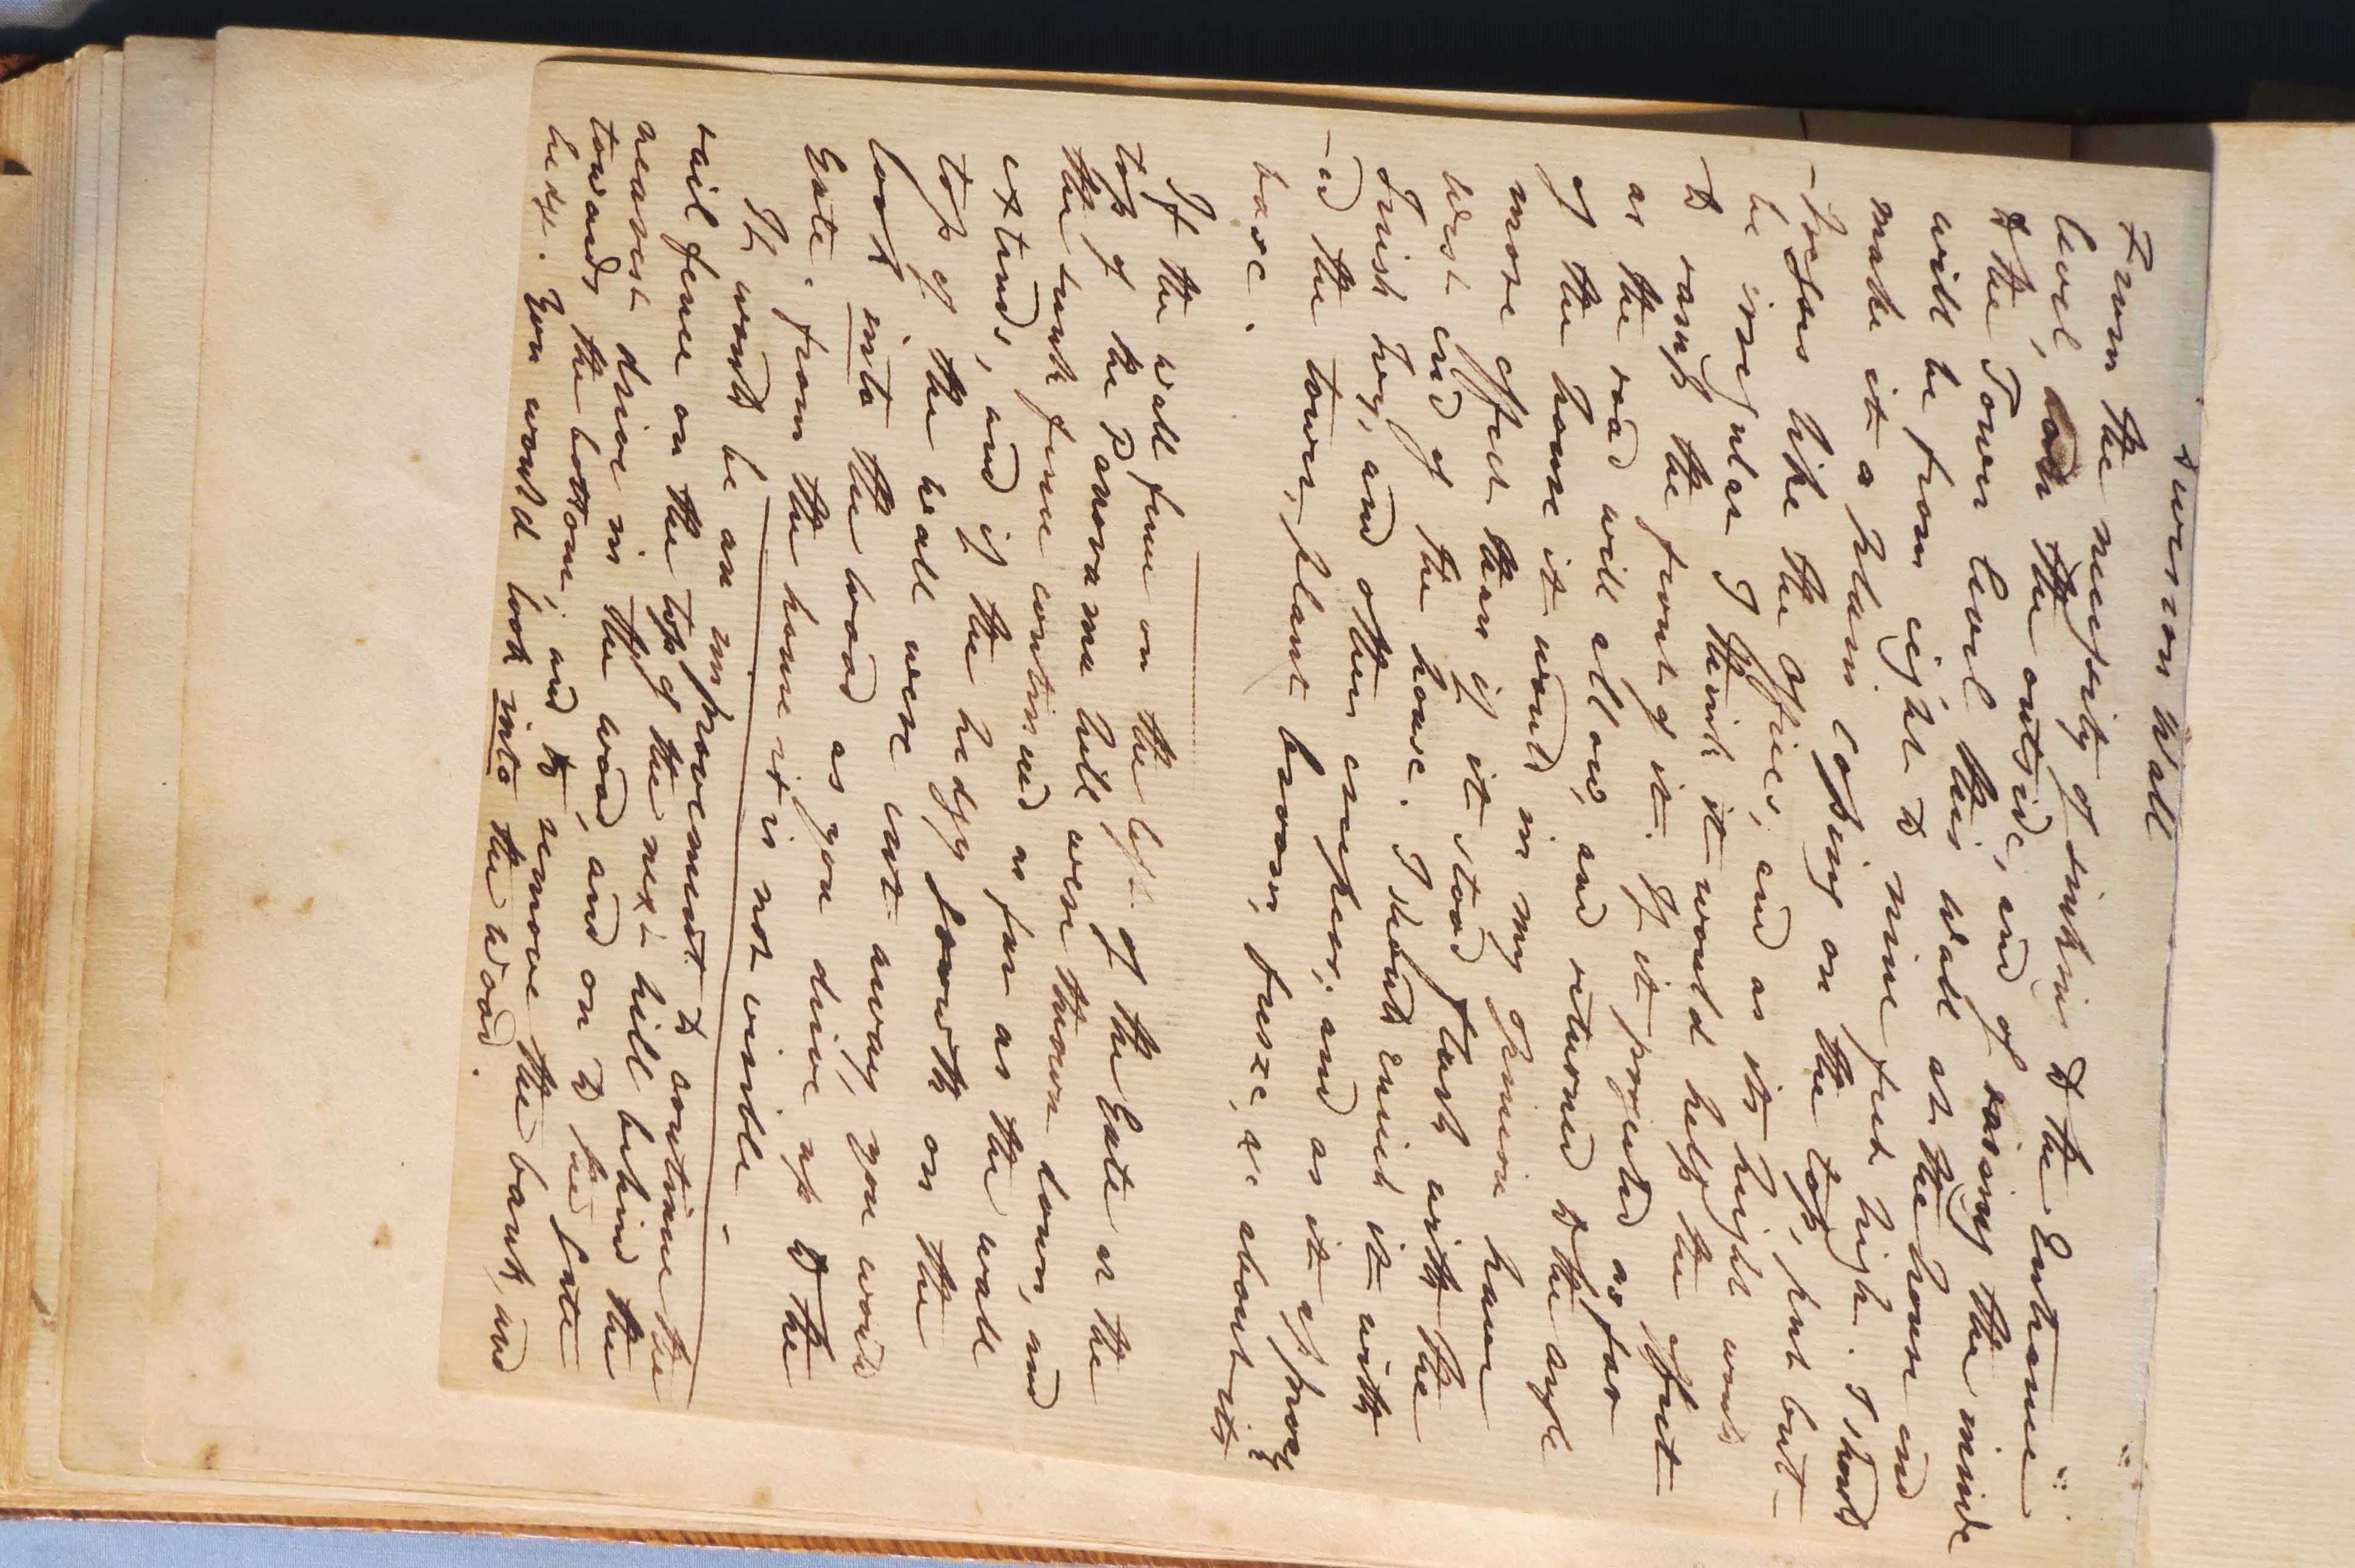 Diversion Wall
From the necessity of sinking to the Entrance
level, on the outside, and of raising the inside
to the Tower level this wall at the house end
will be from eight to nine feet high. I should
make it a plain coping on the top, put but-
-tresses like the offices, and as its height would
be irregular I think it would help the effect
to range the front of it. If it projected as far
as the road will allow, and returned to the angle
of the house it would in my opinion have
more effect than if it stood flush with the
West end of the house. I should cover it with
Irish Ivy, and other creepers; and as it approach
-ed the tower, plant brooms, furze, &c about its
base.
If the wall fence on the left of the Gate at the
top of the Panorama hill were thrown down, and
the sunk fence continued as far as the wall
extends, and if the hedge growth on the
top of the wall were cut away, you would
look into the wood as you drive up to the
Gate. from the house it is not visible.
It would be an improvement to continue the
rail fence on the top of the next hill behind the
nearest drive in the wood, and on to the gate
towards the bottom, and to remove the bank, and
hedge. You would look into the wood.